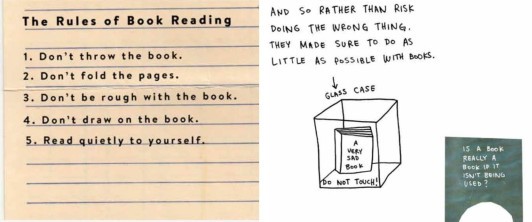 The Rules of Book Reading
1. Don't throw the book.
2. Don't fold the pages.
3. Don't be rough with the book.
4. Don't draw on the book.
5. Read quietly to yourself.
AND SO RATHER THAN RISK
DOING THE WRONG THING,
THEY MADE SURE TO DO AS
LITTLE AS POSSIBLE WITH BOOKS.
GLASS CASE
A
VERY
SAD
BOOK
DO NOT TOUCH!
IS A BOOK
REALLY A
BOOK IF IT
ISN'T BEING
USED?